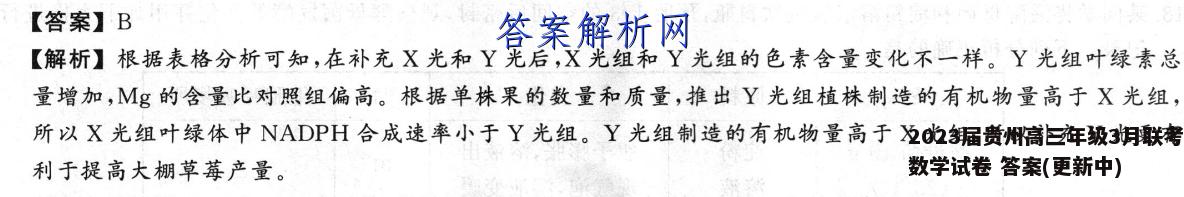 【答案】B
答案解析网
【解析】根据表格分析可知,在补充 X 光和 Y 光后,X 光组和 Y 光组的色素含量变化不一样。Y 光组叶绿素总
量增加,Mg 的含量比对照组偏高。根据单株果的数量和质量,推出 Y 光组植株制造的有机物量高于 X 光组,
所以 X 光组叶绿体中 NADPH 合成速率小于 Y 光组。Y 光组制造的有机物量高于 X
2023届贵州高三年级3月联考
利于提高大棚草莓产量。
数学试卷 答案(更新中)